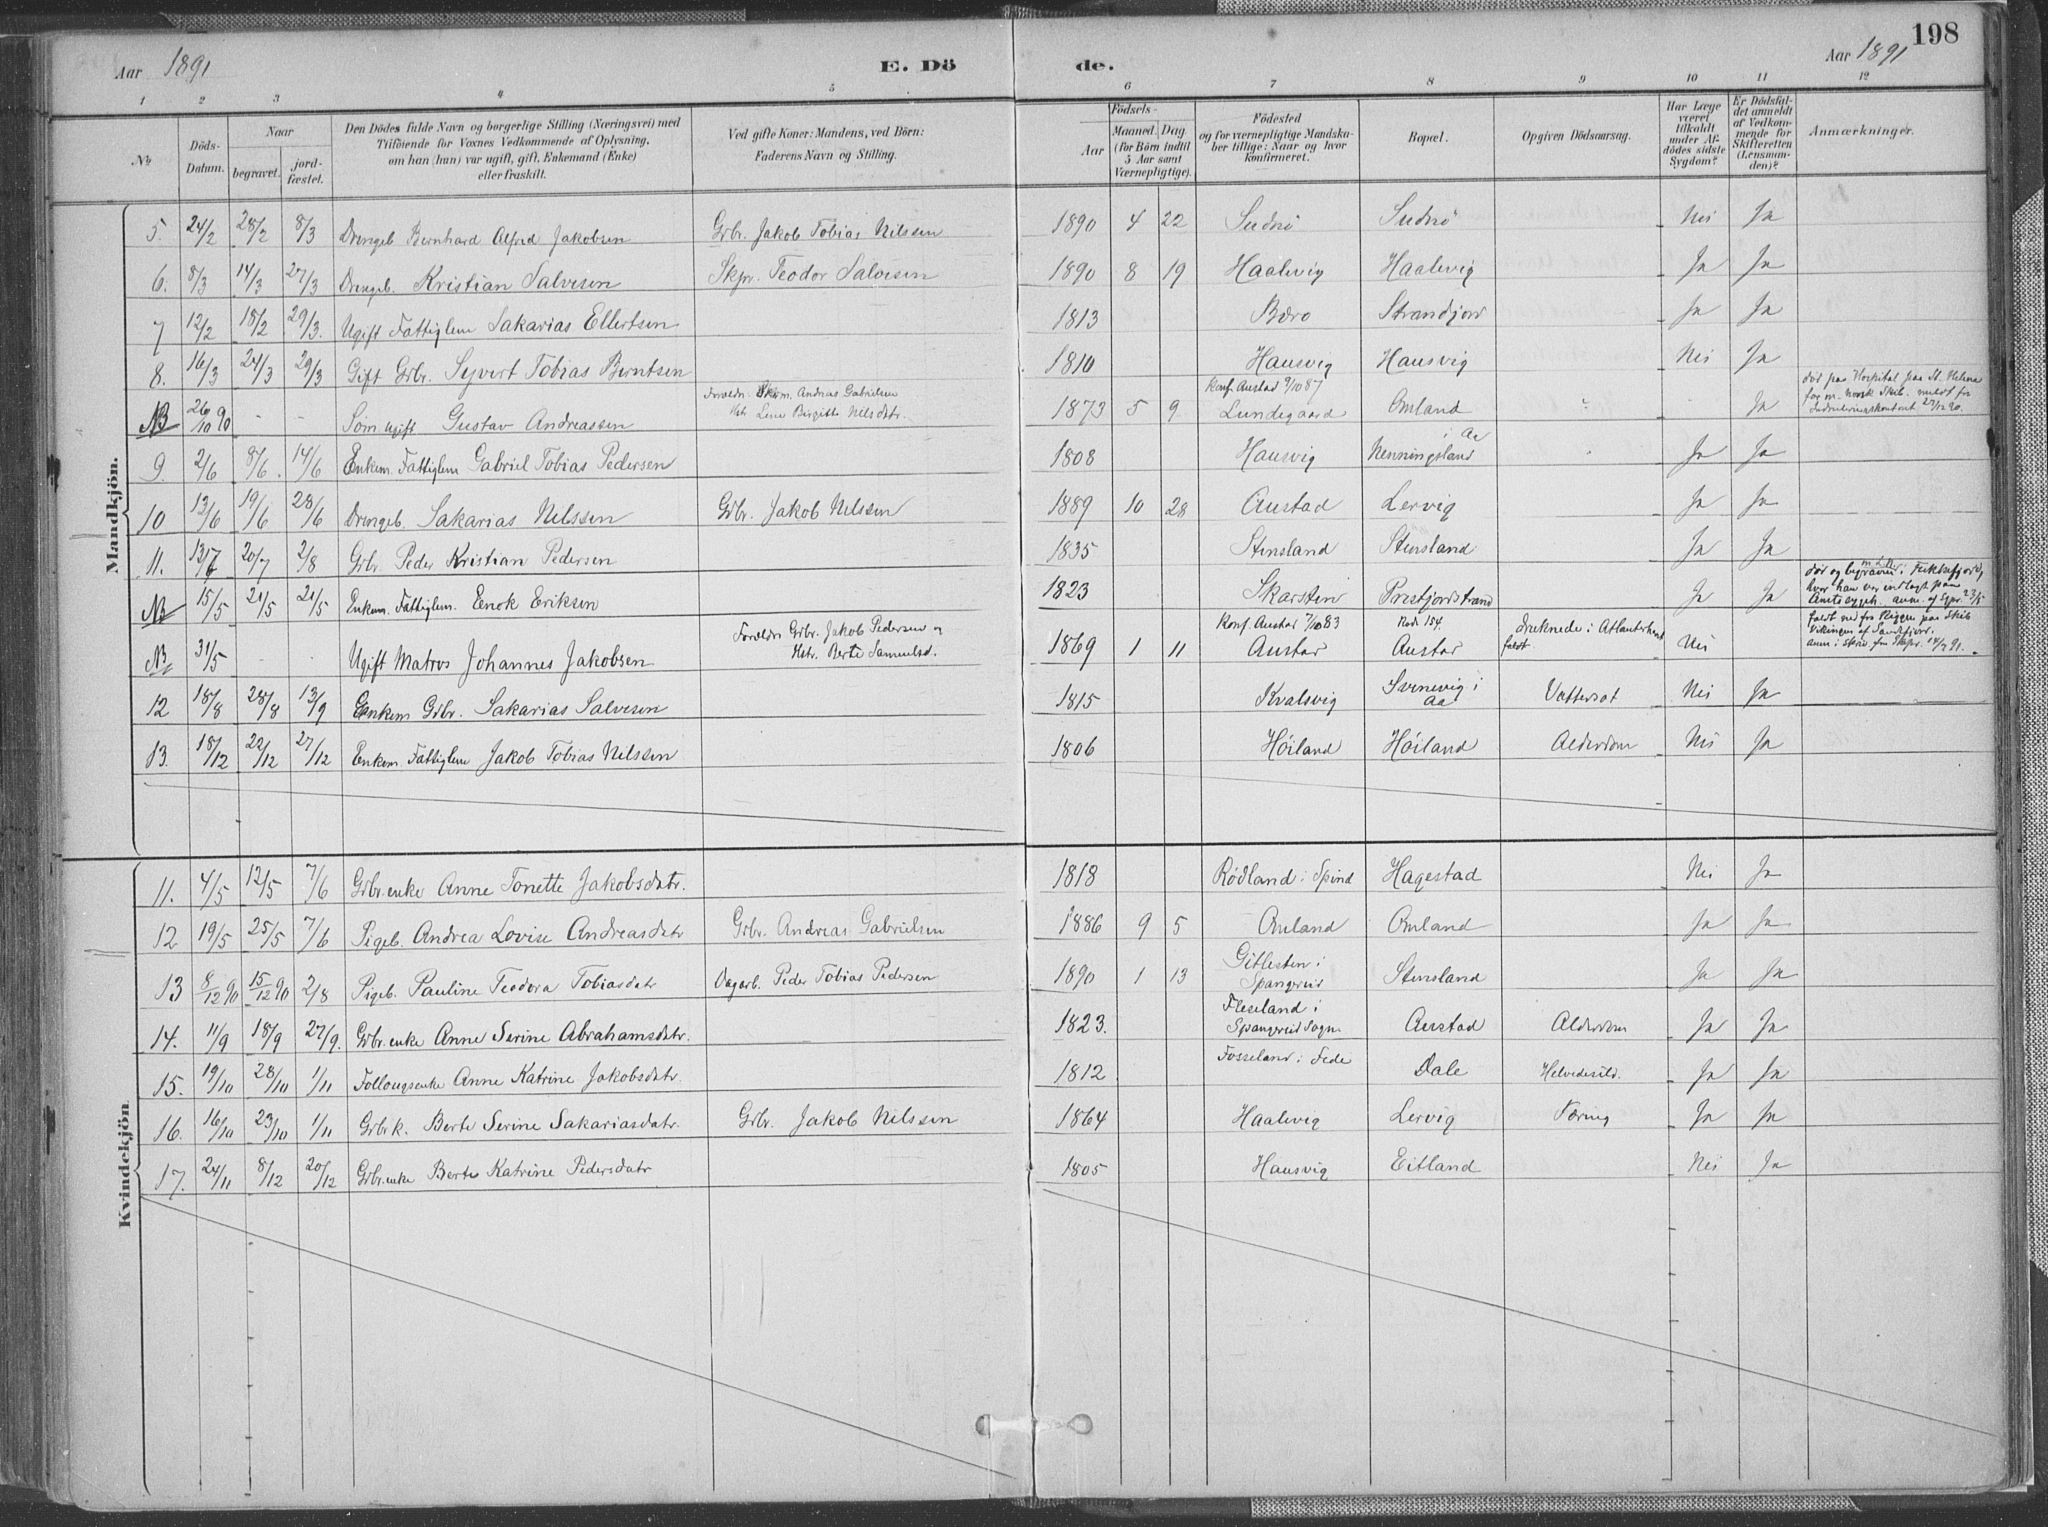 198
Aar 1891 E. Dö de. Aar 1891
1 2 3 4 5 6 7 8 9 10 11 12
No. Döds-Datum. Naar begravet. jord-fæstet. Den Dödes fulde Navn og borgerlige Stilling (Næringsvei) med Tilföiende for Voxnes Vedkommende af Oplysning, om han (hun) var ugift, gift, Enkemand (Enke) eller fraskilt. Ved gifte Koner: Mandens, ved Börn: Faderens Navn og Stilling. Födsels- Aar Maaned. Dag. (for Börn indtil 5 Aar samt Værnepligtige). Födested og for værnepligtige Mandskaber tillige: Naar og hvor konfirmeret. Bopæl. Opgiven Dödsaarsag. Har Læge været tilkaldt under Afdödes sidste Sygdom? Er Dödsfaldet anmeldt af Vedkommende for Skifteretten (Lensmanden)? Anmærkninger.
Mandkjön.
5. 24/2 28/2 8/3 Drengeb. Bernhard Alfred Jakobsen Grbr. Jakob Tobias Nilssen 1890 4 22 Sudnö Sudnö Nei Ja
6. 8/3 14/3 27/3 Drengeb. Kristian Salvesen Skpr. Teodor Salvesen 1890 8 19 Haalevig Haalevig Ja Ja
7 12/2 18/2 29/3. Ugift Fattiglem Sakarias Ellertsen 1813 Bæro Strandjor Ja Ja
8. 16/3 24/3 29/3 Gift Grbr. Syvert Tobias Berntsen 1810 Hausvig Hausvig Nei Ja
NB 26/10 90 - - Söm. ugift Gustav Andreassen Foreldr. Skom. Andreas Gabrielsen Hstr Lene Birgitte Nilsdatr. 1873 5 9 Konf. Austad 9/10 87 Lundegaard Omland Ja död paa Hospital paa St. Helena for m. norsk Skib. meldt fr 27/12 90.
9. 2/6 8/6. 14/6 Enkem. Fattiglem Gabriel Tobias Pedersen 1808 Hausvig Nenningsland i Aa Ja Ja
10 13/6 19/6 28/6 Drengeb. Sakarias Nilssen Grbr. Jakob Nilssen 1889 10 28 Austad Lervig Ja Ja
11. 13/7 20/7 2/8 Grbr. Peder Kristian Pedersen 1835 Stensland Stensland Ja Ja
NB 15/5 21/5 21/5 Enkem. Fattiglem. Enok Eriksen 1823 Skarstein Prestjordstrand Ja Ja död og begravet i hvor han var indlagt paa Amtssygeh. anm. af Spr. 23/5
NB 31/5 - - Ugift Matros Johannes Jakobsen Foreldr. Grbr. Jakob Pedersen og Hstr. Berte Samuelsd. 1869 1 11 Konf. Austad 7/10 83 Austad Rode 154. Austad Druknede i Atlanterhavet faldt Nei faldt ned fra Riggen paa Skib Vikingen af Sandefjord. anm. i skriv fra Skpr. 14/7 91.
12 18/8 28/8 13/9 Enkem Grbr. Sakarias Salvesen 1815 Kvalsvig Svenevig i Aa Vattersot Nei Ja
13. 18/12 22/12 27/12 Enkem. Fattiglem Jakob Tobias Nilssen 1806 Höiland Höiland Alderdom Nei Ja
Kvindekjön.
11. 4/5 12/5 7/6 Grbr. enke Anne Tonette Jakobsdatr. 1818 Rödland i Spind Hagestad Nei Ja
12 19/5 25/5 7/6 Pigeb. Andrea Lovise Andreasdatr Grbr. Andreas Gabrielsen 1886 9 5 Omland Omland Ja Ja
13 8/12 90 15/12 90 2/8 Pigeb. Pauline Teodora Tobiasdatr Dagarb. Peder Tobias Pedersen 1890 1 13 Gitlesten i Spangereid Stensland Ja Ja
14. 11/9 18/9 27/9. Grbr. enke Anne Serine Abrahamsdatr. 1823. Fleseland i Spangereid Sogn Austad Alderdom Ja Ja
15. 19/10 28/10 1/11 Follougsenke Anne Katrine Jakobsdatr. 1812 Fosseland i Fede Dale Helvedesild. Ja Ja
16. 16/10 23/10 1/11 Grbr k. Berte Serine Sakariasdatr. Grbr. Jakob Nilssen 1864 Haalevig Lervig Tæring Ja Ja
17. 24/11 8/12 20/12 Grbr. enke Berte Katrine Pedersdatr 1805 Hausvig Eitland Nei Ja